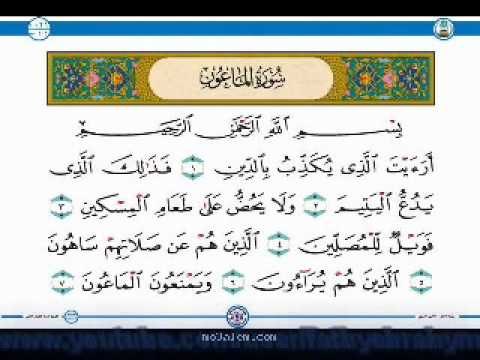 سُورَةُ المَاعُونِ
بِسْمِ اللَّهِ الرَّحْمَٰنِ الرَّحِيمِ
أَرَءَيْتَ الَّذِى يُكَذِّبُ بِالدِّينِ ١ فَذَٰلِكَ الَّذِى
يَدُعُّ الْيَتِيمَ ٢ وَلَا يَحُضُّ عَلَىٰ طَعَامِ الْمِسْكِينِ ٣
فَوَيْلٌ لِّلْمُصَلِّينَ ٤ الَّذِينَ هُمْ عَن صَلَاتِهِمْ سَاهُونَ
٥ الَّذِينَ هُمْ يُرَآءُونَ ٦ وَيَمْنَعُونَ الْمَاعُونَ ٧
mo3alem.com